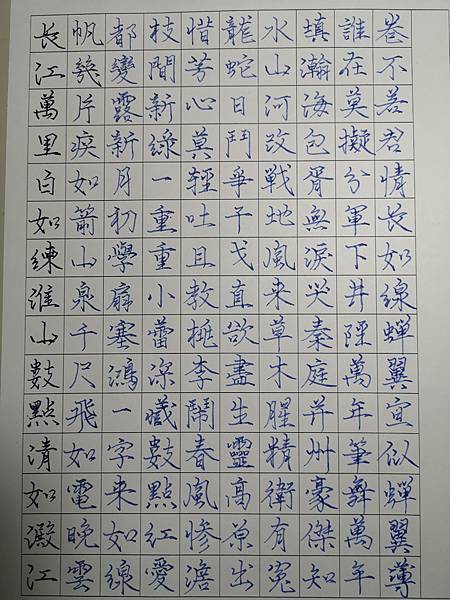 長江萬里白如練淮山數點清如澱江
帆幾片疾如箭山泉千尺飛如電晚雲
都變露新月初學扇塞鴻一字來如線
枝間新綠一重重小蕾深藏數點紅愛
惜芳心莫輕吐且教桃李鬧春風慘澹
龍蛇日鬥爭干戈直欲盡生靈高原出
水山河改戰地風來草木腥精衛有冤
填瀚海包胥無淚哭秦庭并州豪傑知
誰在莫擬分軍下井陘萬年筆舞萬年
卷不若君情長如線蟬翼宣似蟬翼薄